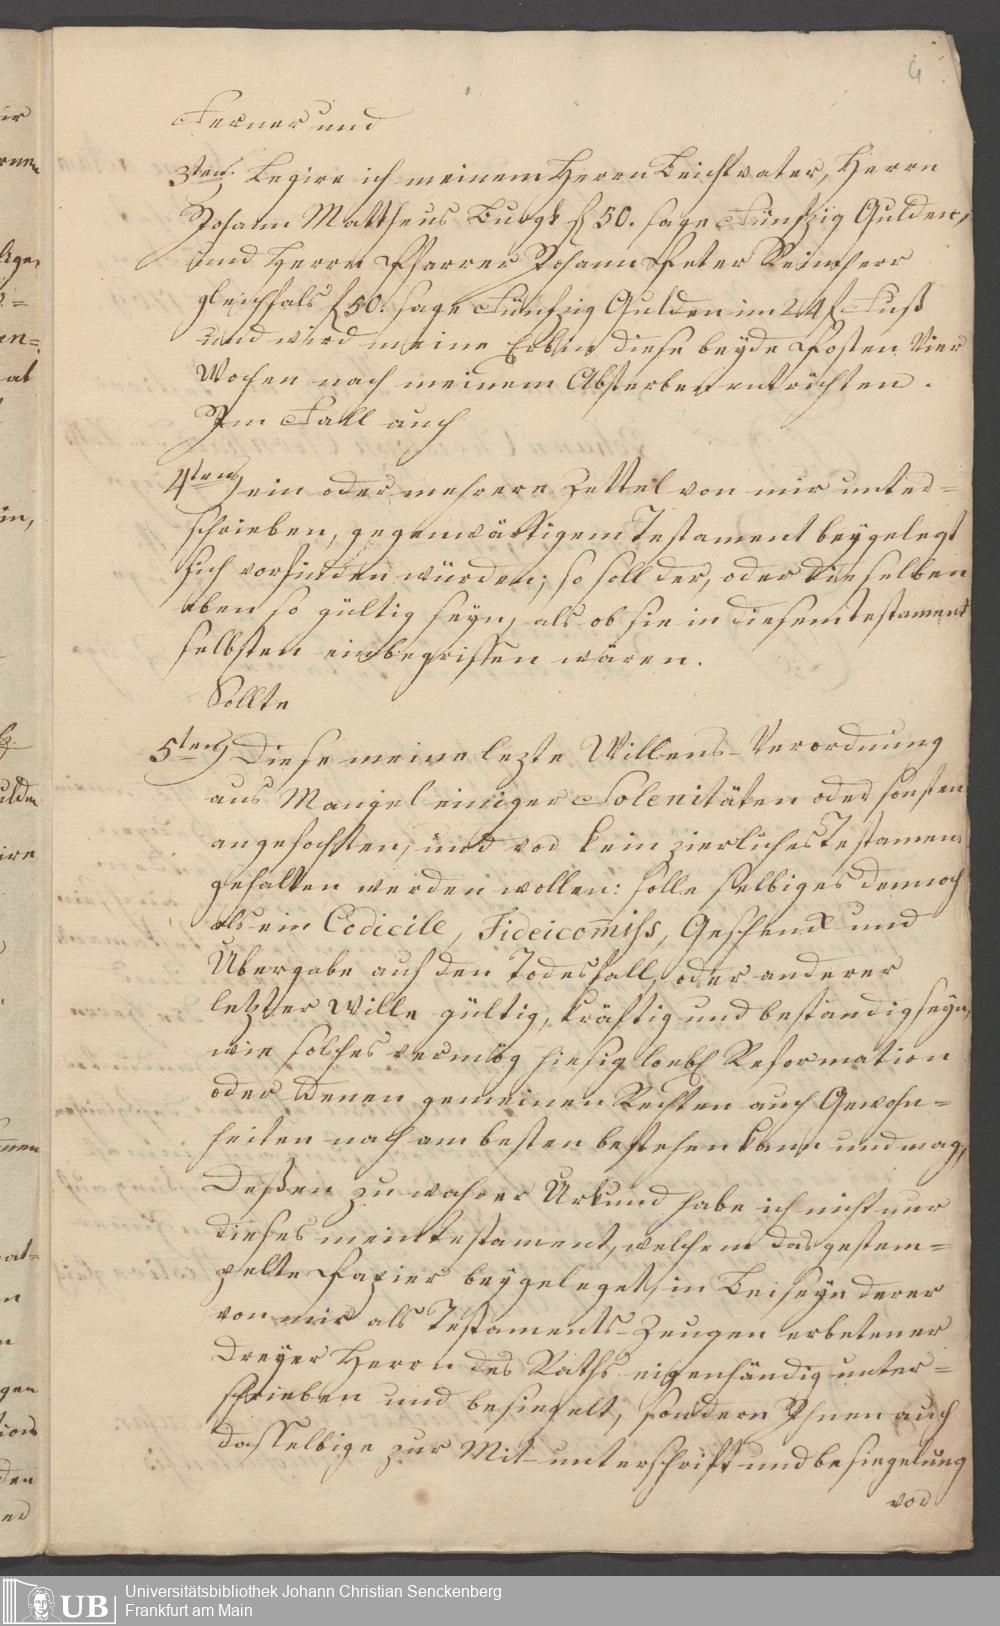 4
Ferner und
3tens) Legire ich meinem Herrn Beichtvater, Herrn
Johann Mattheus Burgk f 50. sage Fünfzig Gulden,
und Herrn Pfarrer Johann Peter Reimherr
gleichfals f 50. sage Fünfzig Gulden im 24 f Fuß
und wird meine Erbin diese beyde Posten Vier
Wochen nach meinem Absterben entrichten.
Im Fall auch
4tens) ein oder mehrere Zettel von mir unter=
schrieben, gegenwärtigem Testament beygelegt
sich vorfinden würden; so soll der, oder dieselben
eben so gültig seyn, als ob sie in diesem testament
selbsten einbegriffen wären.
Sollte
5tens) Diese meine lezte Willens-Verordnung
aus Mangel einiger Solenitäten oder sonsten
angefochten, und vor kein zierliches Testament
gehalten werden wollen: solle selbiges dennoch
als ein Codicile, Fideicom̅iss, Geschenck und
Übergabe auf den Todesfall, oder anderer
letzter Wille gültig, kräftig und beständig seyn,
wie solches vermög hiesig loebl Reformation
oder denen gemeinen Rechten auch Gewohn=
heiten nach am besten bestehen kann und mag,
Deßen zu wahrer Urkund habe ich nicht nur
dieses mein testament, welchem das gestem=
pelte Papier beygeleget, in Beiseyn derer
von mir als Testaments-Zeugen erbetener
Dreyer Herrn des Raths eigenhändig unter=
schrieben und besiegelt, sondern Ihnen auch
dasselbige zur Mit-unterschrift und besiegelung
vor
ir
at
in,
ire
n
gen
den
UB
Universitätsbibliothek Johann Christian Senckenberg
Frankfurt am Main